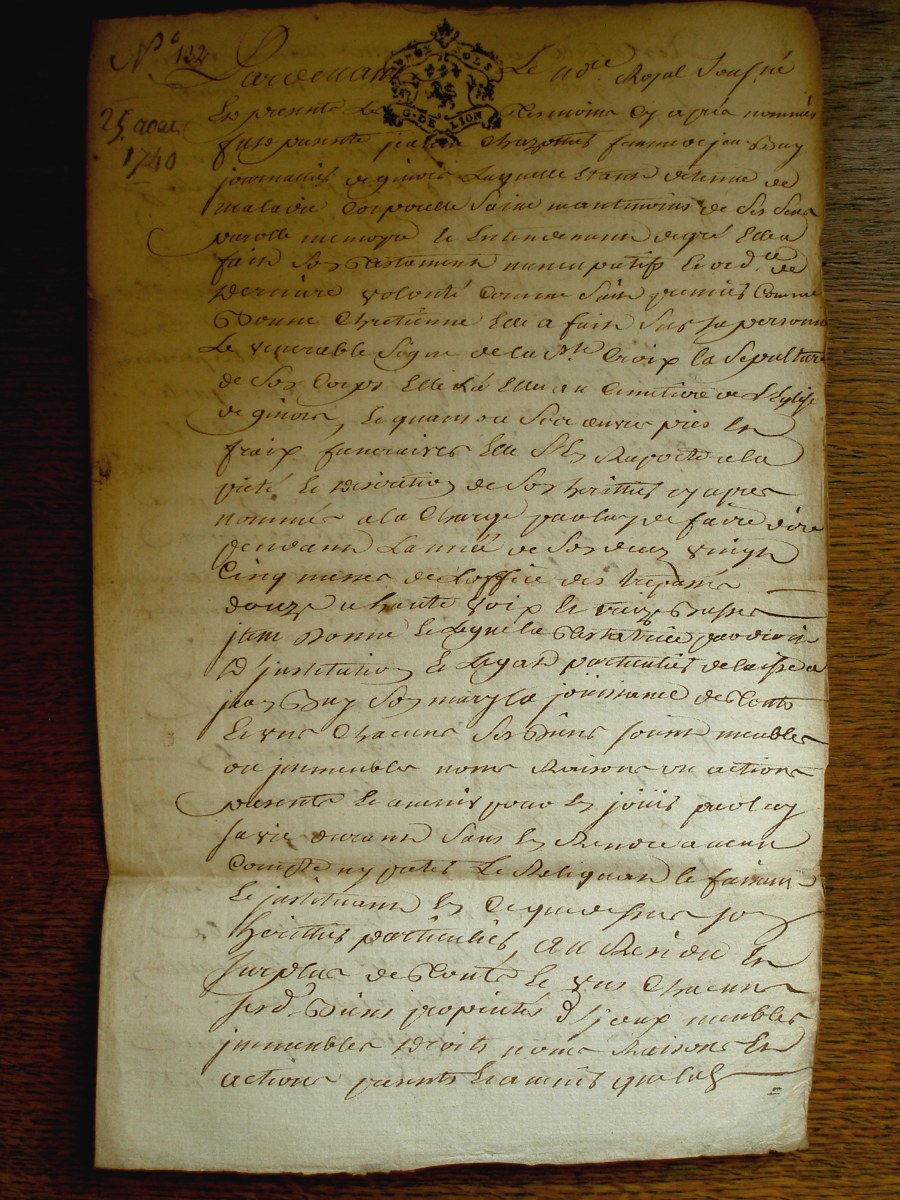 N° 132
25 aout
1740
DEUX SOLS
G. DE LION
Pardevant Le no.re Royal Sousné
En presence Des Temoins Cy apres nommés
fut presente jeanne femme de jean Buy
journallier de ginois Laquelle Etant detenue de
maladie Corporelle Saine neantmoins de Ses Sens
parolle memoyre Et Entendement de gré Elle a
fait Son testament nuncupatif Et ord.ce de
Derniere volonté Comme Suit premier Comme
Bonne Chretienne Elle a fait Sur Sa personne
Le venerable Signe de la S.te Croix la Sepulture
de Son Corps Elle L'a Elluë au Cimetiere de L'Eglise
de ginois, Et quant a Ses œuvres pies Et
fraix funeraires Elle S'En Raporte a la
pieté Et discretion de Son heritier cy apres
nommé a la Charge par luy de faire dire
pendant L'année de Son decez vingt
Cinq messes de L'office des trépassés
douze a haute voix Et treize Basses
jtem Donne Et Legue La testatrice par droit
D'institution Et Legat particulier delaisse a
jean Buy Son mary La joüissance de touts
Et uns Chacuns Ses Biens soient meubles
ou jmmeubles noms Raisons ou actions
presents Et avenir pour En joüir par luy
Sa vie durant Sans En Rendre aucun
Compte ny preter Le Reliquat le faisant
Et jnstituant En Ce que dessus son
heritier particulier, Au Residu Et
surplus de touts Et uns Chacuns
sesd. Biens proprietés d'jceux meubles
jmmeubles Droits noms Raisons Et
actions presents Et avenir